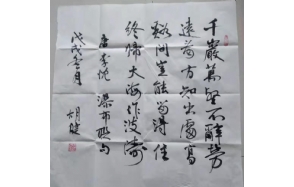 千巖萬壑不辭勞
遠看方知出處高
谿澗豈能留得住
終歸大海作波濤
唐李忱 瀑布聯句
戊戌 月 胡